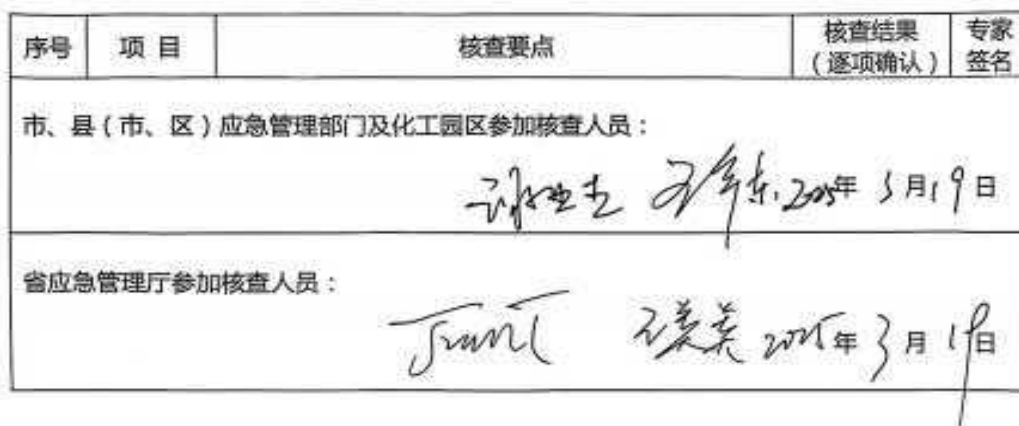 序号 项 目 核查要点 核查结果 专家
(逐项确认) 签名
市、县(市、区)应急管理部门及化工园区参加核查人员:
2025年 3月19日
省应急管理厅参加核查人员:
2025年3月19日